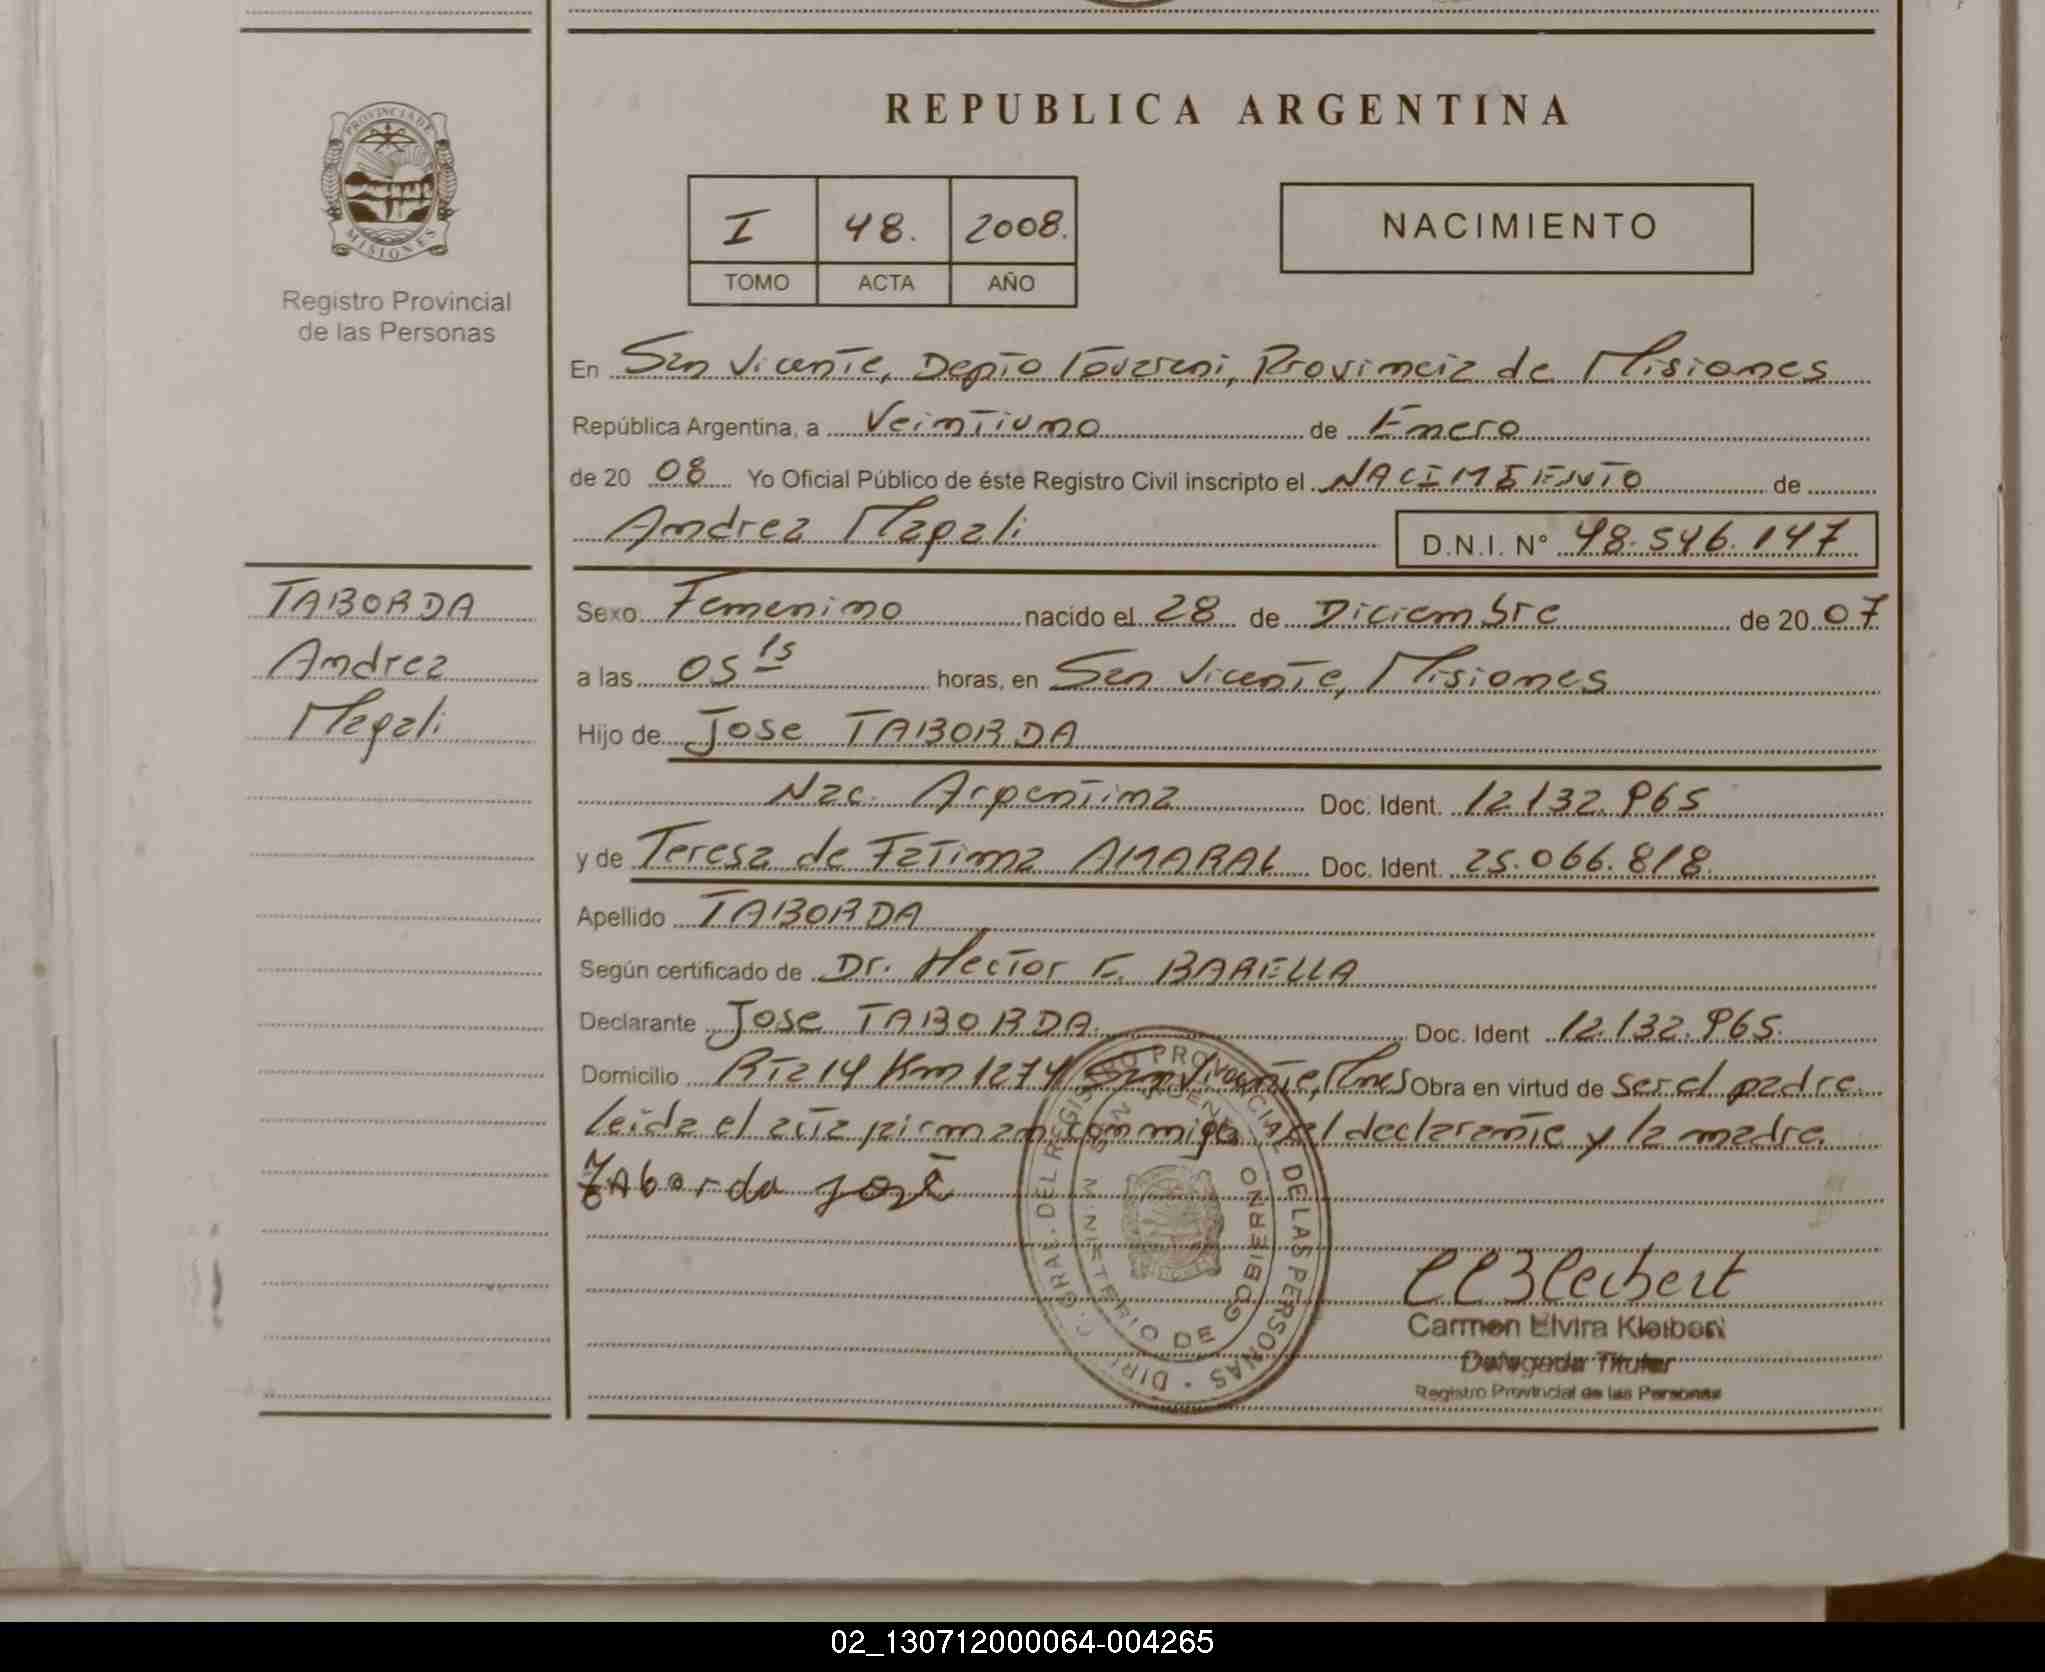 REPUBLICA ARGENTINA
PROVINCIA DE
MISIONES
Registro Provincial
de las Personas
I 48. 2008.
TOMO ACTA AÑO
NACIMIENTO
En San Vicente, Depto Guarani, Provincia de Misiones
República Argentina, a Veintiuno de Enero
de 20 08 Yo Oficial Público de éste Registro Civil inscripto el NACIMIENTO de
Andrea Magali D.N.I. N° 48.546.147
TABORDA
Andrea
Magali
Sexo Femenino nacido el 28 de Diciembre de 20 07
a las 05 15 horas, en San Vicente, Misiones
Hijo de Jose TABORDA
Nac. Argentina Doc. Ident. 12.132.965
y de Teresa de Fatima AMARAL Doc. Ident. 25.066.818.
Apellido TABORDA
Según certificado de Dr. Hector E. BARELLA
Declarante Jose TABORDA. Doc. Ident 12.132.965.
Domicilio Rta 14 Km 1274 San Vicente, Mnes Obra en virtud de ser el padre
leida el acta firman conmigo el declarante y la madre.
TAborda José
DIRECC. GRAL. DEL REGISTRO PROVINCIAL DE LAS PERSONAS
MINISTERIO DE GOBIERNO
Carmen Elvira Kleibert
Delegada Titular
Registro Provincial de las Personas
02_130712000064-004265